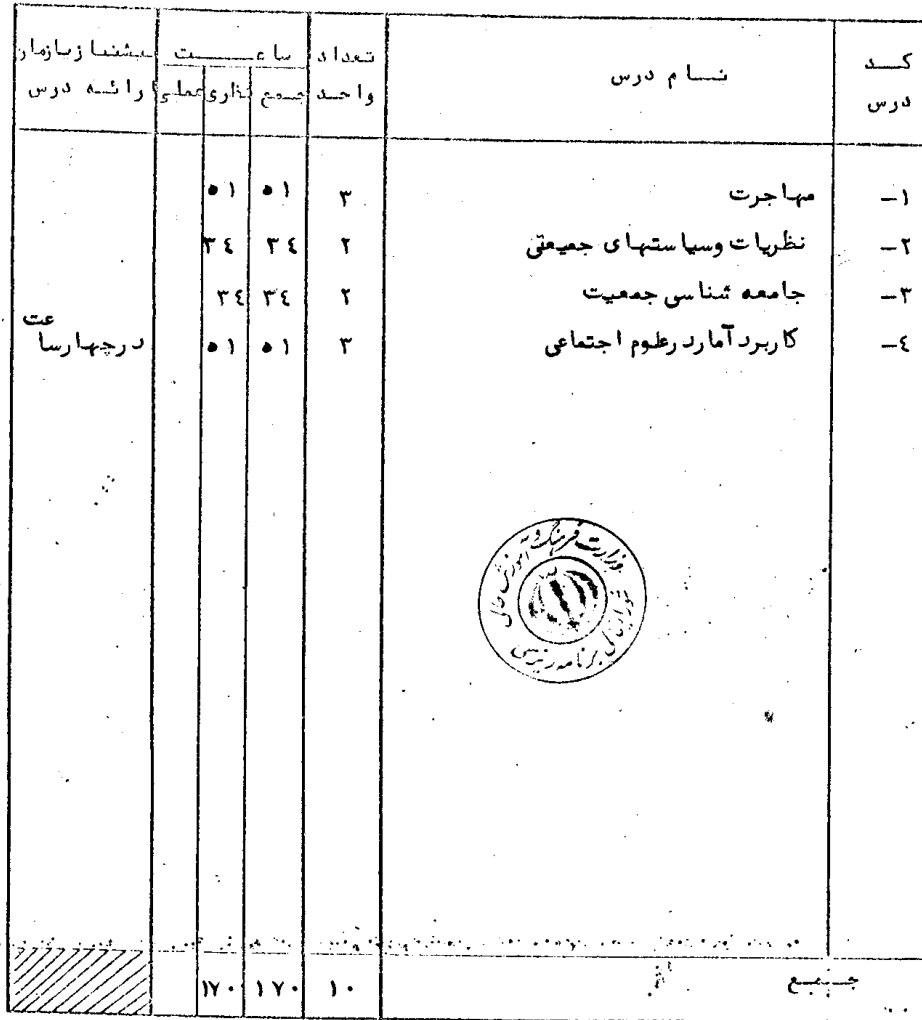 کد درس | نام درس | تعداد واحد | ساعت: جمع | نظری | عملی | پیشنیاز یا زمان ارائه درس
۱- | مهاجرت | ۳ | ۵۱ | ۵۱
۲- | نظریات وسیاستهای جمیعتی | ۲ | ۳٤ | ۳٤
۳- | جامعه شناسی جمعیت | ۲ | ۳٤ | ۳٤
٤- | کاربرد آمار درعلوم اجتماعی | ۳ | ۵۱ | ۵۱ | درچهارساعت
وزارت فرهنگ و آموزش عالی
شورایعالی برنامه ریزی
جمع | ۱۰ | ۱۷۰ | ۱۷۰